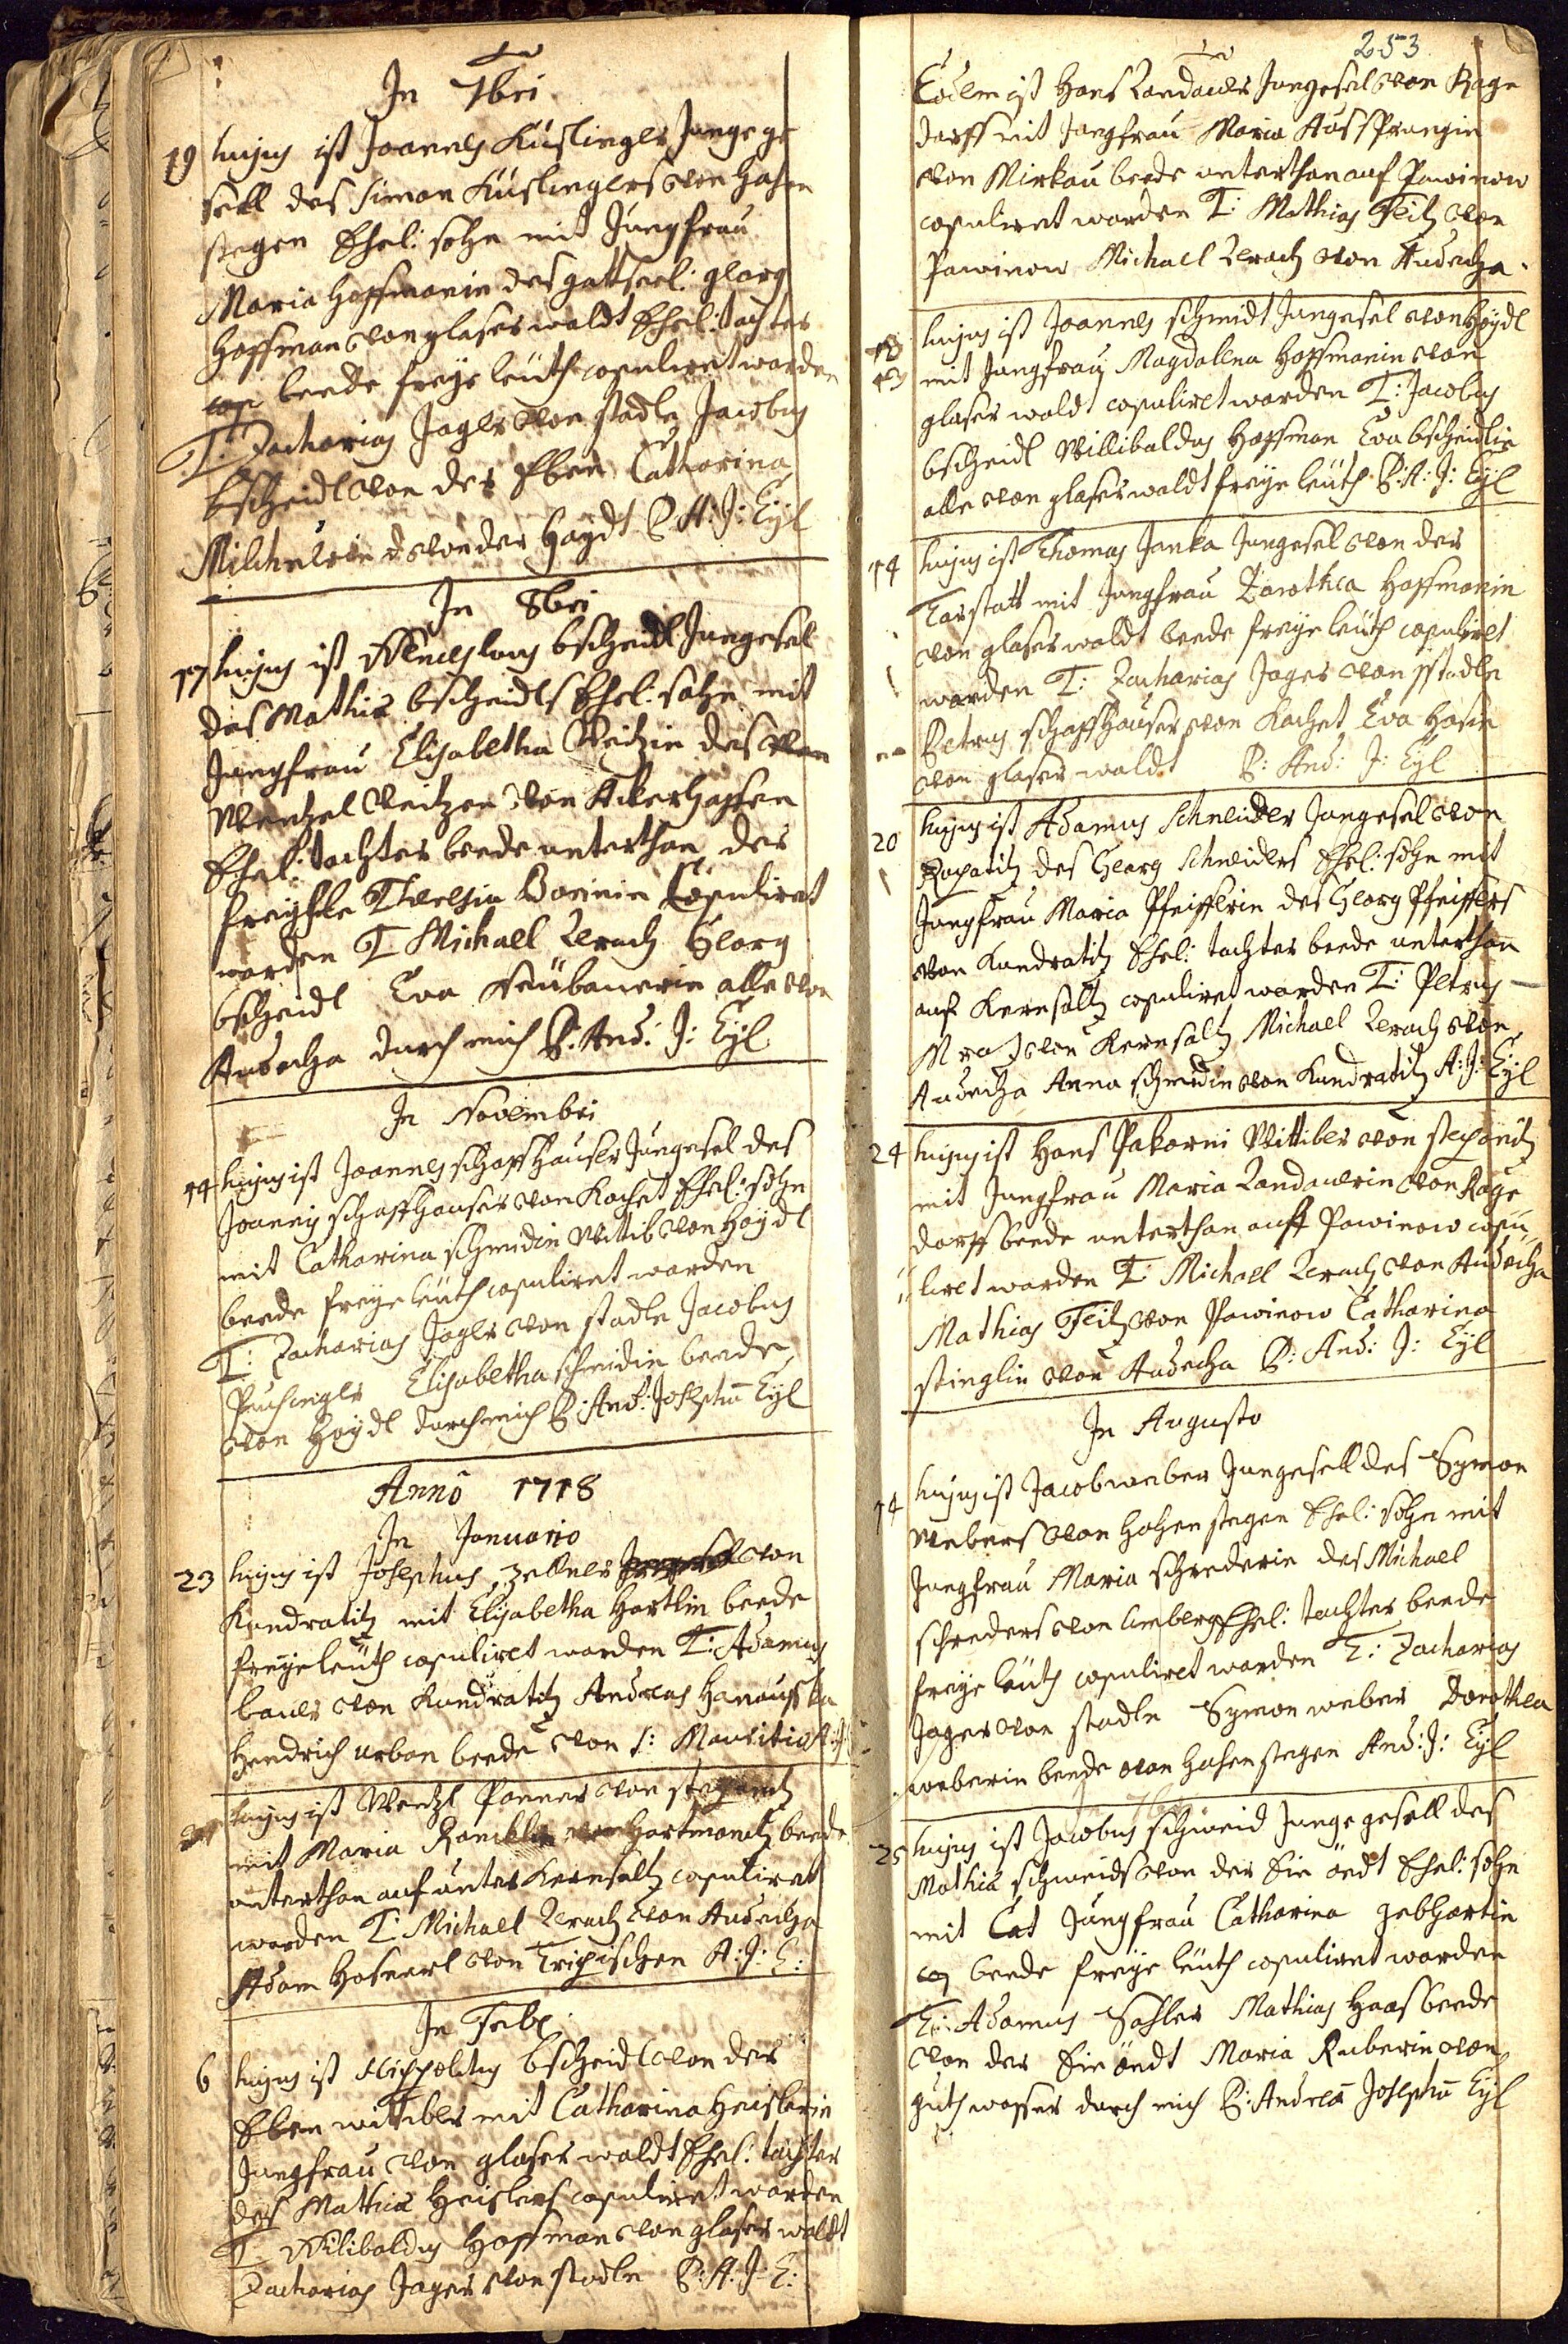 In 7bri
19 hujus ist Joannes Küslinger Junge ge
sell des Simon Küslingers von Hasen
stegen Ehel: sohn mit Jungfrau
Maria Hoffmanin des gottseel: georg
Hoffman von glaser waldt Ehel: tochter
cop beede freye leüth copuliret worden
T: Zacharias Jager von stadln Jacobus
bscheidl von der Eben Catharina
von der Haydt P. A: J: Eÿl
In 8bri
17 hujus ist Wenceslaus bscheidl Jungesel
des Mathiæ bscheidls Ehel: sohn mit
Jungfrau Elisabetha Veitzin des von
Wentzel Veitzen von Ackerhoffen
Ehel: tochter beede unterthan der
freyfle Theresia Borinin Copuliret
worden T Michael Lerach Georg
bscheidl Eva Neübauerin alle von
Audecha durch mich P: And: J: Eÿl
In Novembri
14 hujus ist Joannes schaffhauser Jungesel des
Joannis schaffhauser von Kochet Ehel: sohn
mit Catharina schmidin Wittib von Haydl
beede freye leüth copuliret worden
T: Zacharias Jager von stadln Jacobus
Elisabetha schmidin beede
von Haÿdl durch mich P: And: Josephū Eÿl
Annō 1718
In Januario
23 hujus ist Josephus Zellner von
Kundratitz mit Elisabetha Hartlin beede
freyeleüth copuliret worden T: Adamus
bauer von Kundratitz Andreas Hanausska
Hendrich urban beede von S: Mauritio A: J:
hujus ist Wentzl Ponner von stepanitz
mit Maria von Hartmanitz beede
unterthan auf unter Kernsaltz copuliret
worden T: Michael Lerach von Audecha
Adam Hosnerl von Tripischen A: J: E:
In Feb:
6 hujus ist Hippolitus bscheidl von der
Eben wittiber mit Catharina Heislerin
Jungfrau von glaser waldt Ehel: tochter
des Mathiæ Heislers copuliret worden
T Wilibaldus Hoffman von glaser waldt
Zacharias Jager von stadln P: A: J: E:
253
Eodem ist Hans Landauer Jungesel von Rage
dorff mit Jungfrau Maria Aussprungin
von Mirkau beede unterthan auf Pawinow
copuliret worden T: Mathias Feitz von
Pawinow Michael Lerach von Audecha
13 hujus ist Joannes schmidt Jungesel von Haydl
mit Jungfrau Magdalena Hoffmanin von
glaser waldt copuliret worden T: Jacobus
bscheidl Willibaldus Hoffman Eva bscheidlin
alle von glaser waldt freye leüth P: A: J: Eÿl
14 hujus ist Thomas Janka Jungesel von der
Vorstatt mit Jungfrau Dorothea Hoffmanin
von glaser waldt beede freye leüth copuliret
worden T: Zacharias Jager von stadln
Petrus schaffhauser von Kochet Eva Hasin
von glaser waldt P: And: J: Eÿl
20 hujus ist Adamus Schneider Jungesel von
Rapatitz des Georg Schneiders Ehel: sohn mit
Jungfrau Maria Pfeifferin des Georg Pfeiffers
von Kundratitz Ehel: tochter beede unterthan
auf Kernsaltz copuliret worden T: Petrus
Mraz von Kernsaltz Michael Lerach von
Audecha Anna schmidin von Kundratitz A: J: Eÿl
24 hujus ist Hans Pakorni Wittiber von stepanitz
mit Jungfrau Maria Landauerin von Rage
dorff beede unterthan auff Pawinow copu
liret worden T: Michael Lerach von Audecha
Mathias Feitz von Pawinow Catharina
stinglin von Audecha P: And: J: Eÿl
In Augusto
14 hujus ist Jacob weber Jungesell des Symon
Webers von Hohenstegen Ehel: sohn mit
Jungfrau Maria schrederin des Michael
schreders von Amberg Ehel: tochter beede
freye leüth copuliret worden T: Zacharias
Jager von stadln Symon weber Dorothea
weberin beede von Hohenstegen And: J: Eÿl
25 hujus ist Jacobus schmeid Junge gesell des
Mathiæ schmeids von der Ein öedt Ehel: sohn
mit Cat Jungfrau Catharina gebhartin
cop beede freÿe leüth copuliret worden
T: Adamus Sahler Mathias Haas beede
von der Ein öedt Maria Ruberin von
guth wasser durch mich P: Andreā Josephū Eÿl